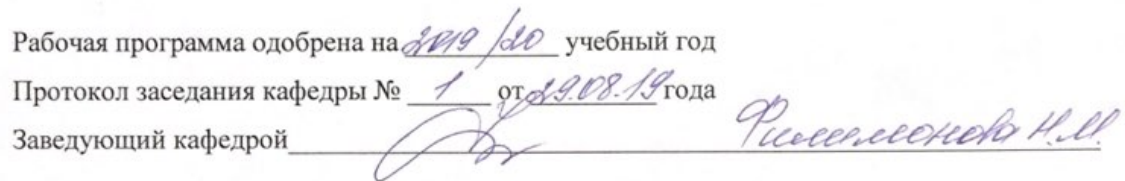 Рабочая программа одобрена на 2019/20 учебный год
Протокол заседания кафедры № 1 от 29.08.19 года
Заведующий кафедрой Филимонова Н.М.